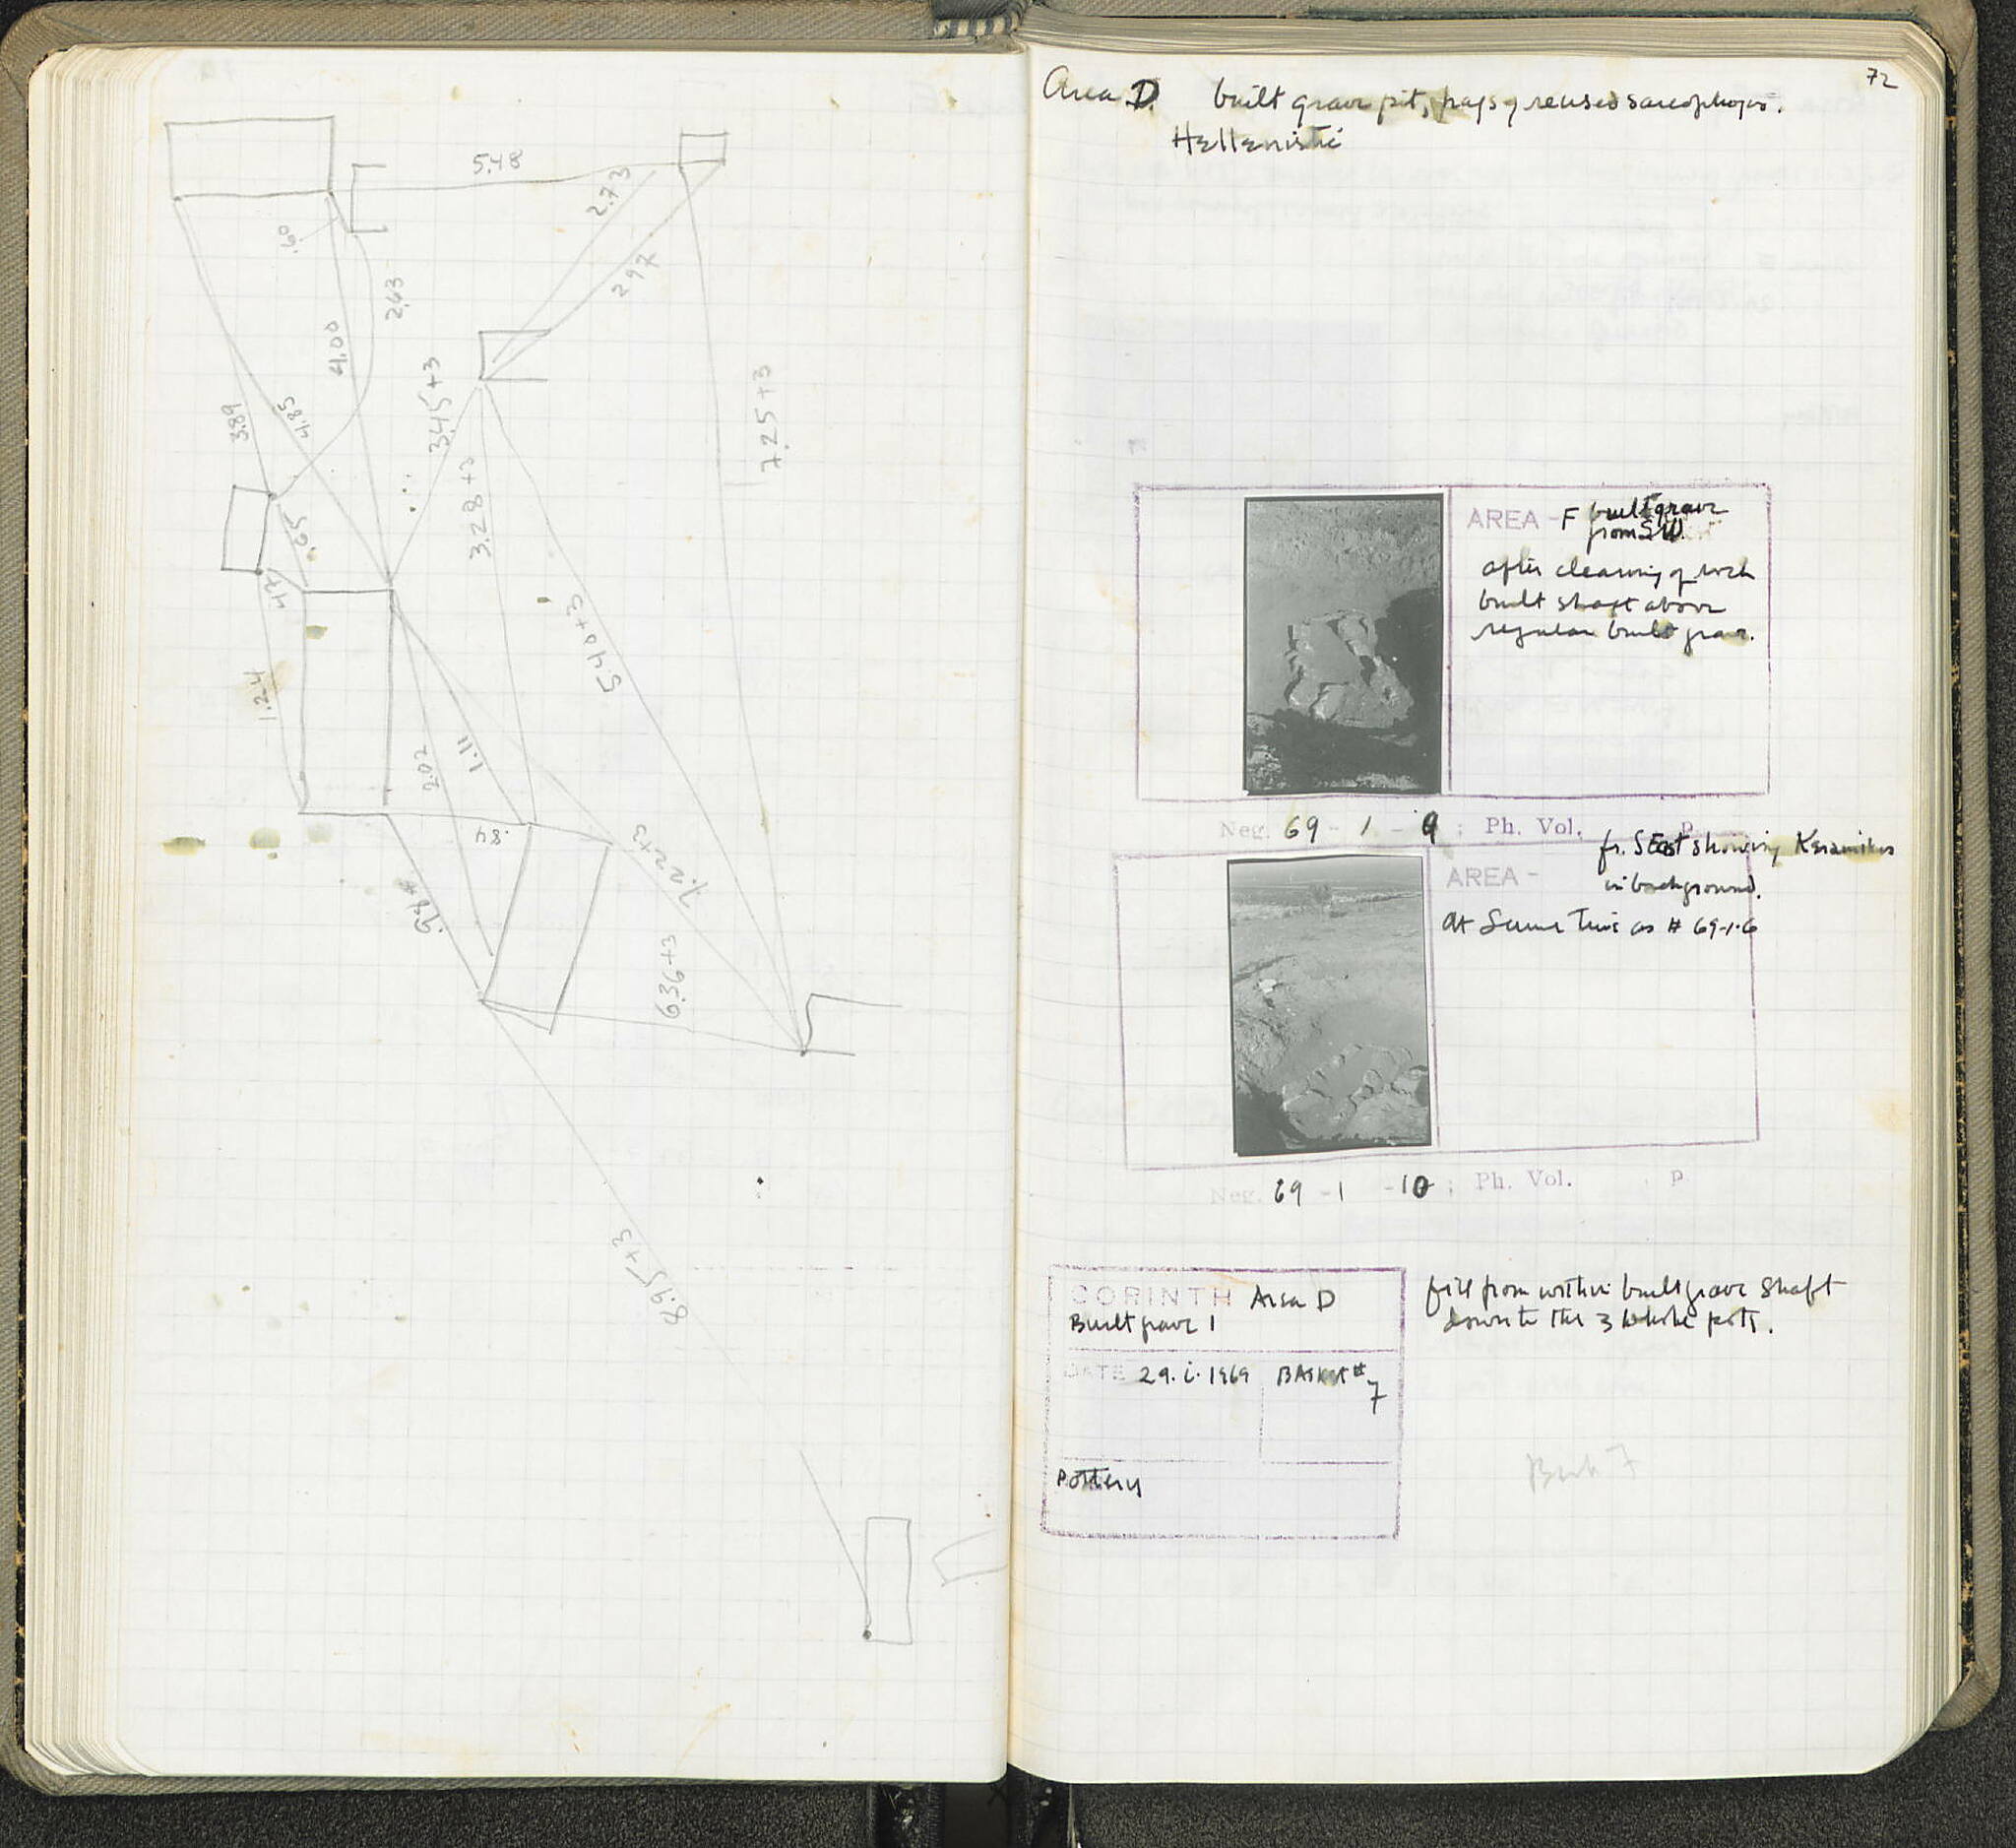 5.48
2.73
2.97
.60
2.63
4.00
3.45+3
7.25+3
3.89
4.85
3.28+3
.65
.47
5.40+3
1.24
2.02
1.11
.84
7.22+3
6.36+3
8.95+3
72
Area D. built grave pit, reused sarcophagus.
Hellenistic
AREA - F built grave
from SW.
after clearing of
built shaft above
regular built grave.
Neg. 69 - 1 - 9 ; Ph. Vol. p
fr. SEast showing Keramikos
in background.
AREA -
At Same Time as # 69-1-6
Neg. 69 - 1 - 10 ; Ph. Vol. p
CORINTH Area D
Built grave 1
DATE 29.i.1969 BASKET #
7
Pottery
fill from within built grave shaft
down to the 3 whole pots.
7